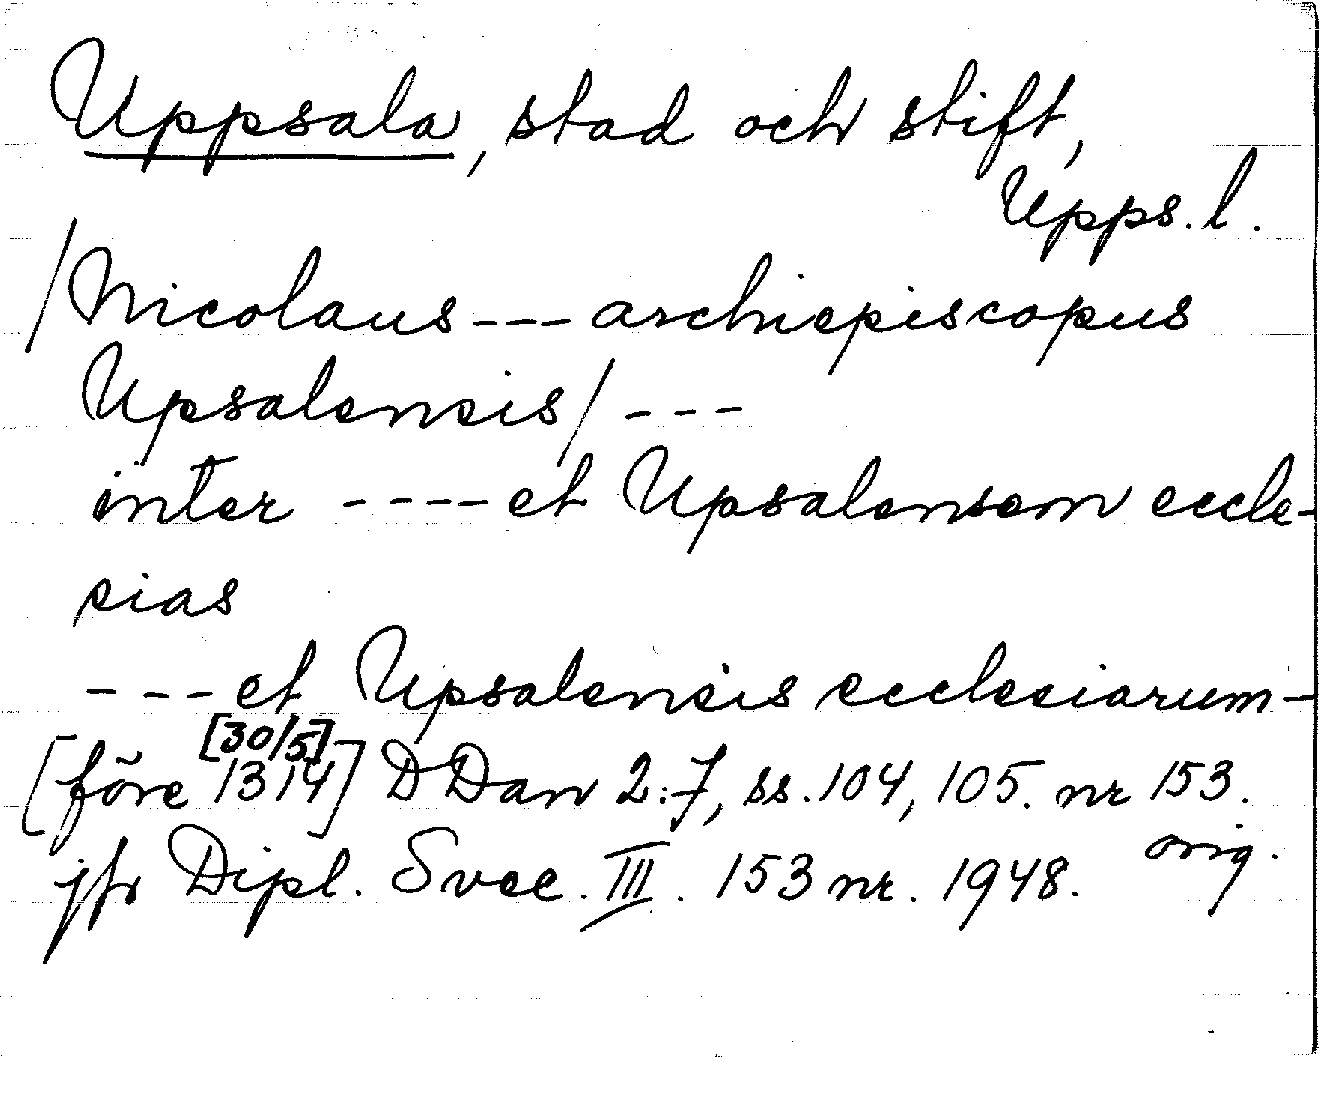 Uppsala, stad och stift,
Upps. l.
/Nicolaus --- archiepiscopus
Upsalensis/ ---
inter ---- et Upsalensem eccle-
sias
--- et Upsalensis ecclesiarum-
[30/5]
[före 1314] DDan 2:7, ss. 104, 105. nr 153.
orig.
jfr Dipl. Svec. III. 153 nr. 1948.